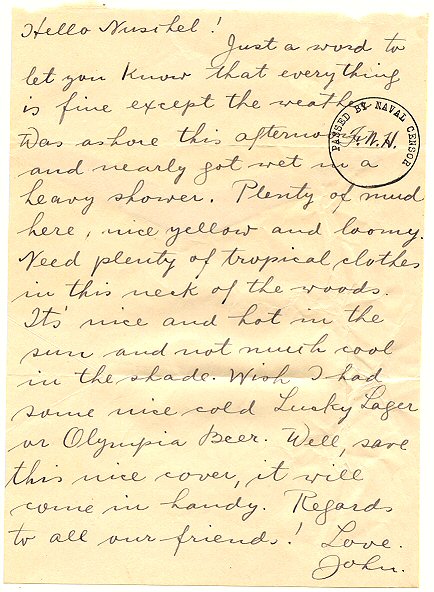 Hello Nuschel!
Just a word to
let you know that everything
is fine except the weather
Was ashore this afternoon
PASSED BY NAVAL CENSOR
F.W.H.
and nearly got wet in a
heavy shower. Plenty of mud
here, nice yellow and loomy.
Need plenty of tropical clothes
in this neck of the woods.
It's nice and hot in the
sun and not much cool
in the shade. Wish I had
some nice cold Lucky Lager
or Olympia Beer. Well, save
this nice cover, it will
come in handy. Regards
to all our friends! Love.
John.